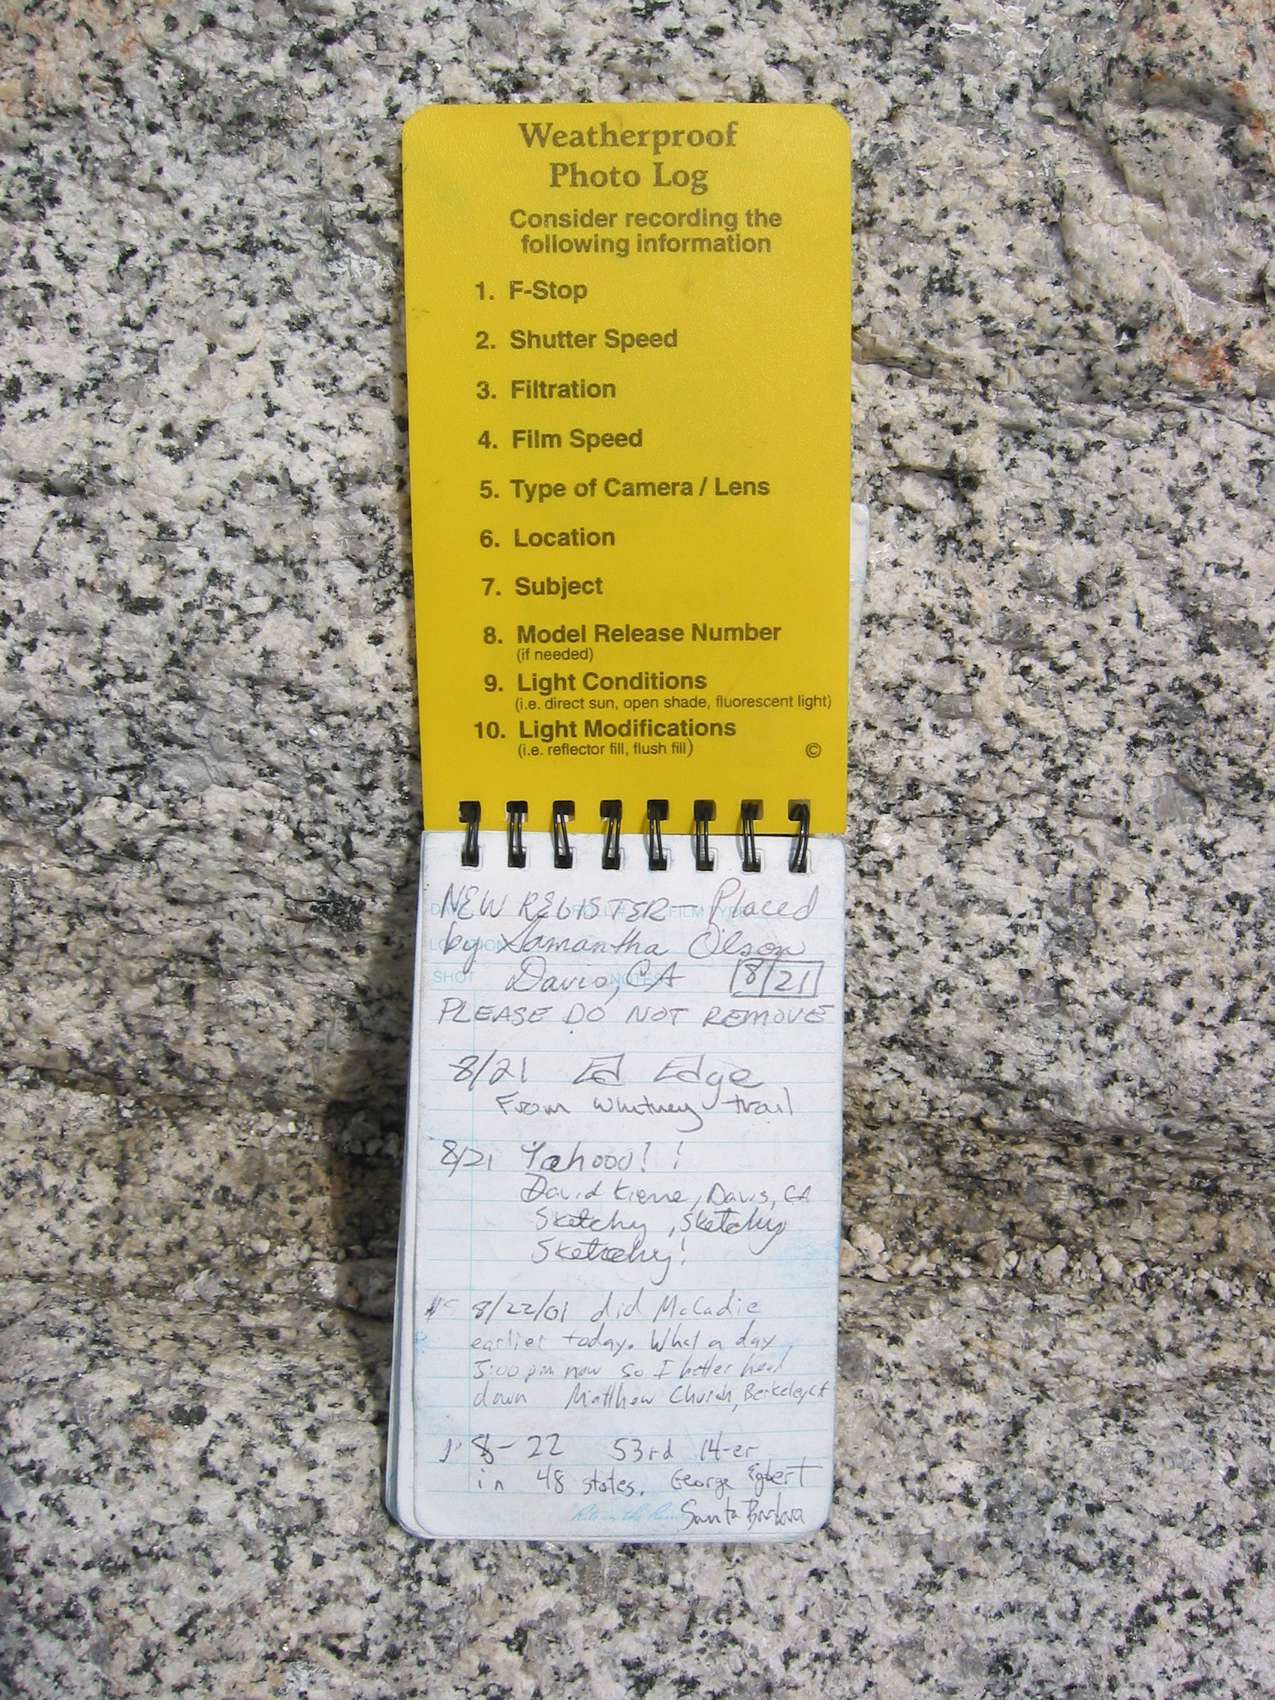 Weatherproof
Photo Log
Consider recording the
following information
1. F-Stop
2. Shutter Speed
3. Filtration
4. Film Speed
5. Type of Camera / Lens
6. Location
7. Subject
8. Model Release Number
(if needed)
9. Light Conditions
(i.e. direct sun, open shade, fluorescent light)
10. Light Modifications
(i.e. reflector fill, flush fill)
©
NEW REGISTER - Placed
by Samantha Olson
Davis, CA 8/21
PLEASE DO NOT REMOVE
8/21 Ed Edge
From Whitney trail
8/21 Yahooo! !
David Kiene, Davis, CA
Sketchy, sketchy
Sketchy!
8/22/01 did McCadie
earlier today. What a day
5:00 pm now so I better head
down Matthew Church, Berkeley CA
8-22 53rd 14-er
in 48 states. George Egbert
Santa Barbara